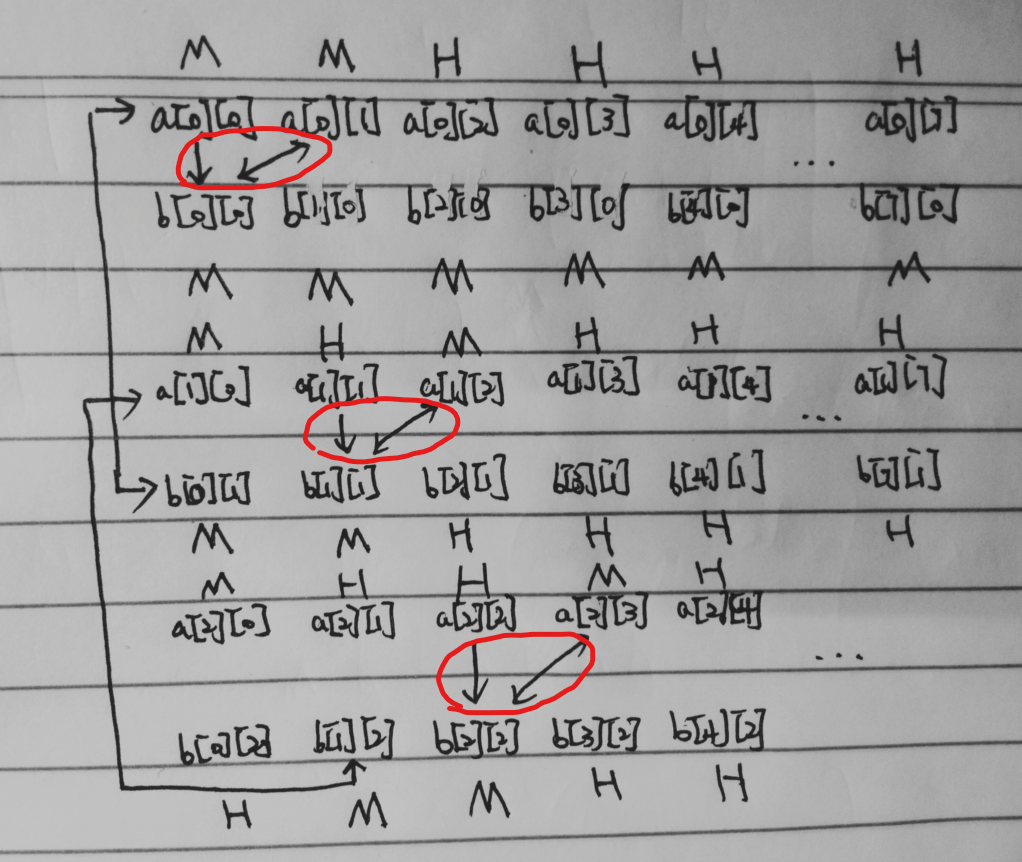 M M H H H H
a[0][0] a[0][1] a[0][2] a[0][3] a[0][4] ... a[0][7]
b[0][0] b[1][0] b[2][0] b[3][0] b[4][0] b[7][0]
M M M M M M
M H M H H H
a[1][0] a[1][1] a[1][2] a[1][3] a[1][4] ... a[1][7]
b[0][1] b[1][1] b[2][1] b[3][1] b[4][1] b[7][1]
M M H H H H
M H H M H
a[2][0] a[2][1] a[2][2] a[2][3] a[2][4] ...
b[0][2] b[1][2] b[2][2] b[3][2] b[4][2]
H M M H H